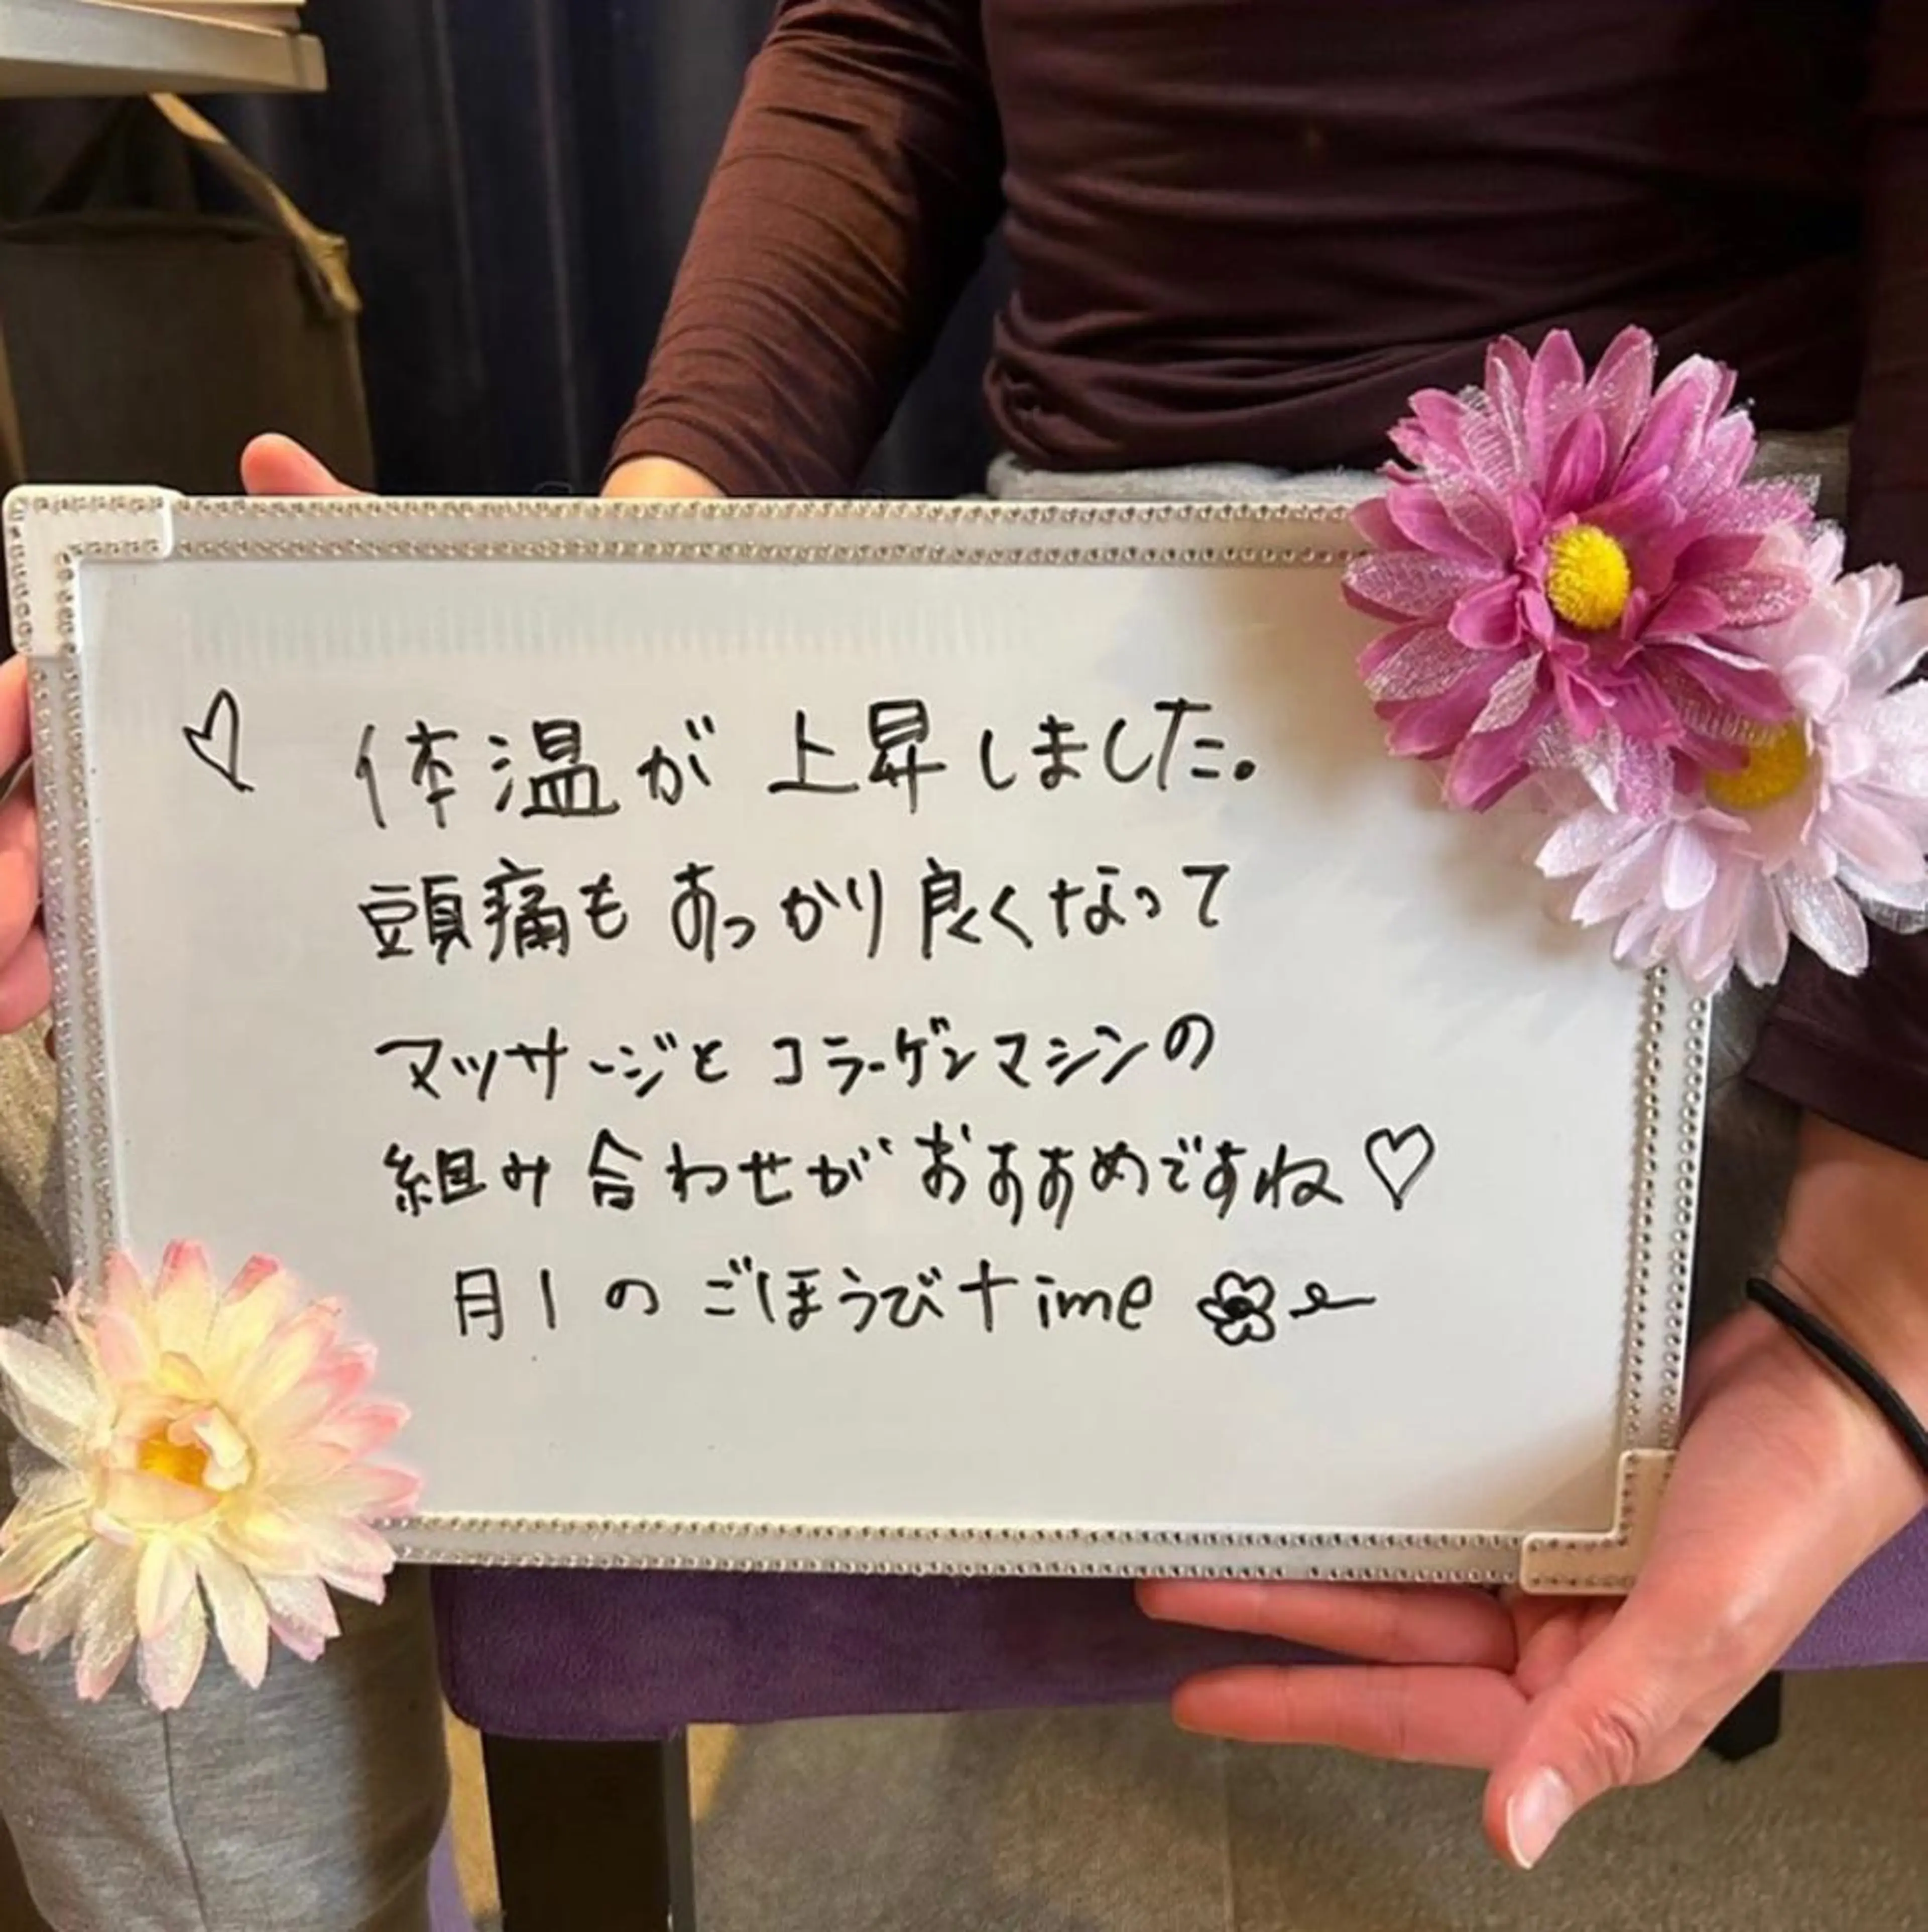 ♡ 体温が上昇しました。
頭痛もあっかり良くなって
マッサージとコラーゲンマシンの
組み合わせがおすすめですね♡
月1のごほうびtime